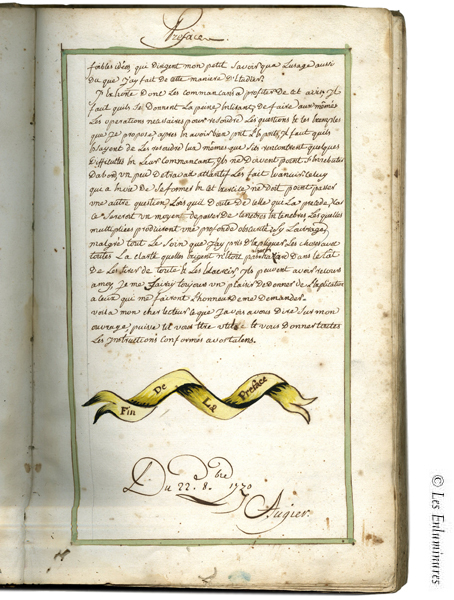 Preface
foibles idées qui dirigent mon petit savoir qu'a Lusage aussi
du que J'ay fait de cette maniere d'Etudier.
J'exhorte donc Les Commançans a profiter de cet avis, Il
faut quils se donnent La peine En lisant, de faire eux mêmes
Les operations necessaires pour resoudre Les questions et les Exemples
que Je propose, apres En avoir bien prit L'Esprit, Il faut quils
Essayent de Les resoudre Eux mêmes que S'ils rencontrent quelques
difficultés En Leur Commencant, Ils ne doivent point
Dabord un peu de travail attentif Les fait vaincre, Celuy
qui a Envie de se former En cet Exercice ne doit point passer
une autre question Lorsquil doute de Celle qui La precede, Car
Ce Seroit un moyen de passer de tenebres En tenebres Les quelles
multipliées produiroit une profonde obscurité, Si
malgré tout Le Soin que J'ay pris d'Expliquer Les choses avec
toutes La clarté quelles Exigent
De Les tirer de toute Ils peuvent avoir recours
a moy, Je me fairay toujours un plaisir de donner de L'aplication
a Ceux qui me fairont L'honneur de me demander.
voila mon cher Lecteur Ce que J'avois a vous dire Sur mon
ouvrage, puisse til vous Etre utile Et vous donner toutes
Les Instructions Conformes
Fin De La Preface
Du 22. 8.bre 1770
Augier.
© Les Enluminures